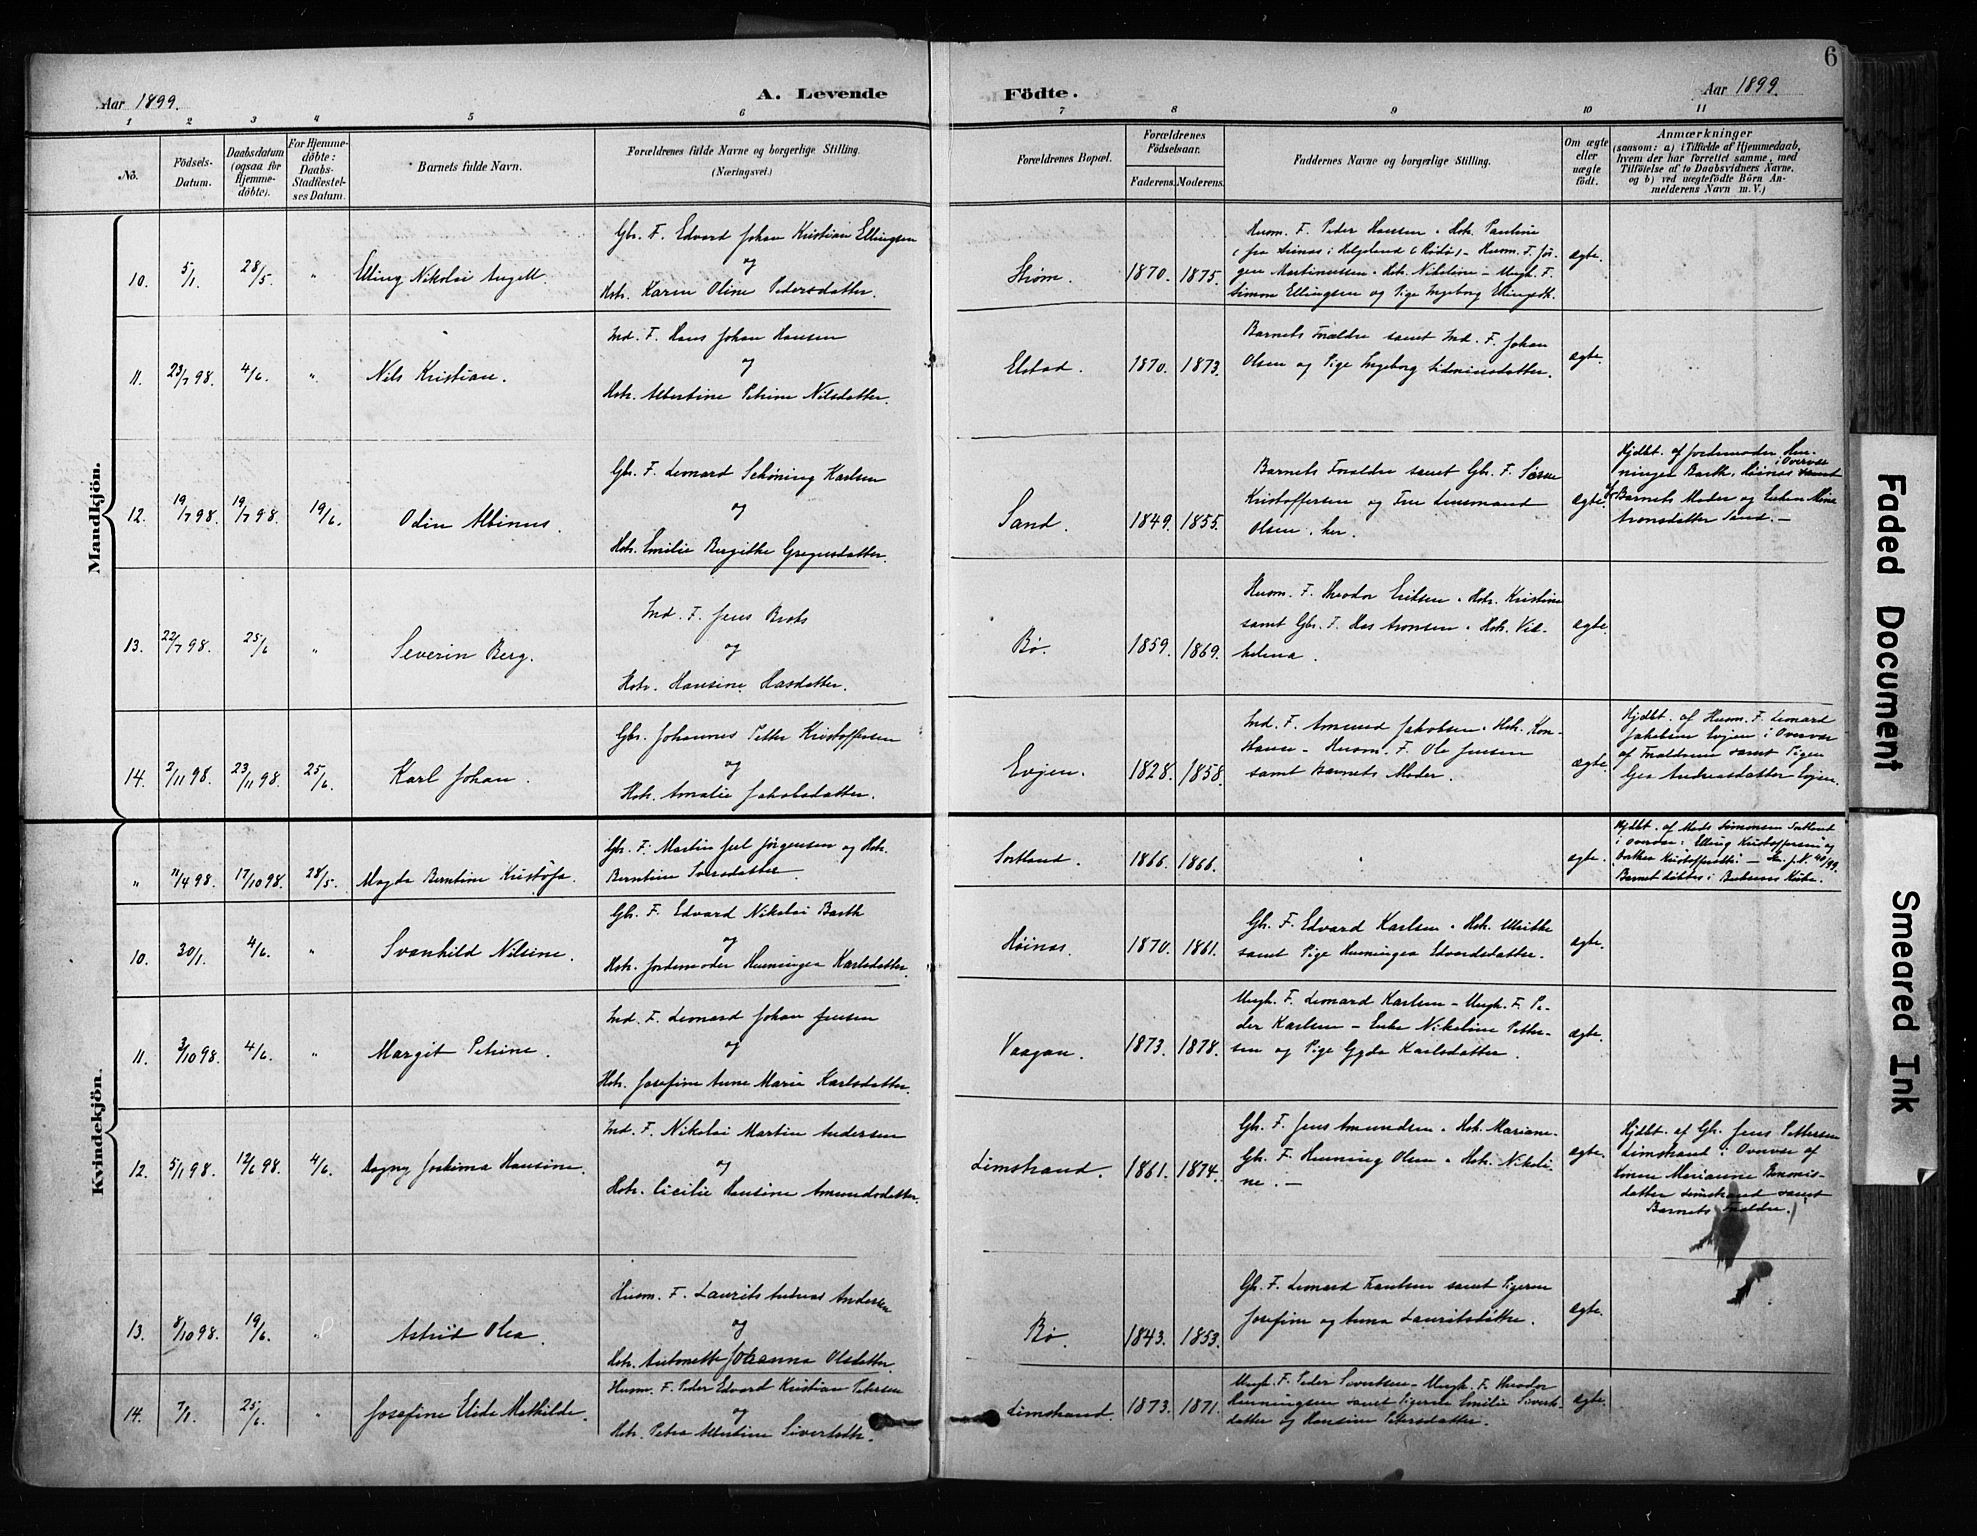 6
Aar 1899.
A. Levende
Födte.
Aar 1899.
1 2 3 4 5 6 7 8 9 10 11
No.
Födsels-
Datum.
Daabsdatum
(ogsaa for
Hjemme-
döbte).
For Hjemme-
döbte:
Daabs-
Stadfæstel-
ses Datum.
Barnets fulde Navn.
Forældrenes fulde Navne og borgerlige Stilling.
(Næringsvei.)
Forældrenes Bopæl.
Forældrenes
Födselsaar.
Faderens. Moderens.
Faddernes Navne og borgerlige Stilling.
Om ægte
eller
uægte
födt.
Anmærkninger
(saasom: a) i Tilfælde af Hjemmedaab,
hvem der har forrettet samme, med
Tilföielse af to Daabsvidners Navne,
og b) ved uægtefödte Börn An-
melderens Navn m. V.)
Mandkjön.
10. 5/1. 28/5. " Elling Nikolai Angell.
Gbr. F. Edvard Johan Kristian Ellingsen
og
Hstr. Karen Oline Pedersdatter.
Strøm. 1870. 1875.
Husm. F. Peder Hansen. Hstr. Pauline
(fra i Helgeland (Rødø) – Husm. F. Jør-
gen Martinussen. Hstr. Nikoline – Ungk. F.
Simon Ellingsen og Pige Ingeborg Ellingsdtr.
ægte.
11. 23/7 98. 4/6. " Nils Kristian.
Ind. F. Hans Johan Hansen
og
Hstr. Albertine Petrine Nilsdatter.
Elstad. 1870. 1873.
Barnets Forældre samt Ind. F. Johan
Olsen og Pige Ingeborg
ægte.
12. 19/7 98. 19/7 98. 19/6. Odin Albinus.
Gbr. F. Leonard Schøning Karlsen
og
Hstr. Emilie Bergithe Gregusdatter.
Sand. 1849. 1855.
Barnets Forældre samt Gbr. F.
Kristoffersen og Fru Lensmand
Olsen, her.
ægte.
Hjdbt. af Jordemoder Hen-
ningea Barth, Høines i Overvær
af Barnets Moder og Enken
Aronsdatter Sand. –
13. 22/7 98. 25/6 " Severin Berg.
Ind. F. Jens
og
Hstr. Hansine Hasdatter.
Bø. 1859. 1869.
Husm. F. Theodor Eriksen. Hstr. Kristine
samt Gbr. F. Has Aronsen. Hstr. Vil-
helmina.
ægte.
14. 2/11 98. 23/11 98. 25/6. Karl Johan.
Gbr. Johannes Petter Kristoffersen
og
Hstr. Amalie Jakobsdatter.
Evjen. 1828. 1858.
Ind. F. Amund Jakobsen. Hstr. Kon-
stanse – Husm. F. Ole Jensen
samt Barnets Moder.
ægte.
Hjdbt. af Husm. F. Leonard
Jakobsen Evjen i Overvær
af Forældrene samt Pigen
Andreasdatter Evjen.
Kvindekjön.
" 11/4 98. 17/10 98. 28/5. Magda Berntine Kristofa.
Gbr. F. Martin Juel Jørgensen og Hstr.
Berntine
Sortland. 1866. 1866.
ægte.
Hjdbt. af Mads Simonsen Sortland
i Overvær: Elling Kristoffersen og
10. 30/1. 4/6. " Svanhild Nilsine.
Gbr. F. Edvard Nikolai Barth
og
Hstr. Jordemoder Henningea Karlsdatter.
Høines. 1870. 1861.
Gbr. F. Edvard Karlsen. Hstr. Ulrikke
samt Pige Henningea Edvardsdatter.
ægte.
11. 3/10 98. 4/6. " Margit Petrine.
Ind. F. Leonard Johan Jensen
og
Hstr. Josefine Anne Marie Karlsdatter.
Vaagan. 1873. 1878.
Ungk. F. Leonard Karlsen – Ungk. F. Pe-
der Karlsen – Enke Nikoline Petter-
sen og Pige Gyda Karlsdatter.
ægte.
12. 5/1 98. 12/6 98. 4/6. Dagny Joakima Hansine.
Ind. F. Nikolai Martin Andersen
og
Hstr. Cicilie Hansine Amundsdatter.
Limstrand. 1861. 1874.
Gbr. F. Jens Amundsen. Hstr. Mariane.
Gbr. F. Henning Olsen. Hstr. Nikoli-
ne. –
ægte.
Hjdbt. af Gbr. Jens Pettersen
Limstrand i Overvær af
Konen Marianne
datter Limstrand samt
Barnets Forældre.
13. 8/10 98. 19/6. " Astrid Olea.
Husm. F. Laurits Andreas Andersen
og
Hstr. Antonette Johanna Olsdatter.
Bø. 1843. 1853.
Gbr. F. Leonard samt Pigerne
Josefine og Anna Lauritsdøttre.
ægte.
14. 7/1. 25/6. " Josefine Elida Mathilde.
Husm. F. Peder Edvard Kristian Petersen
og
Hstr. Petra Albertine Sivertsdtr.
Limstrand. 1873. 1871.
Ungk. F. Peder Sivertsen – Ungk. F. Theodor
Henningsen samt Pigerne Emilie Siverts-
datter og Hansine Petersdatter.
ægte.
Faded Document
Smeared Ink